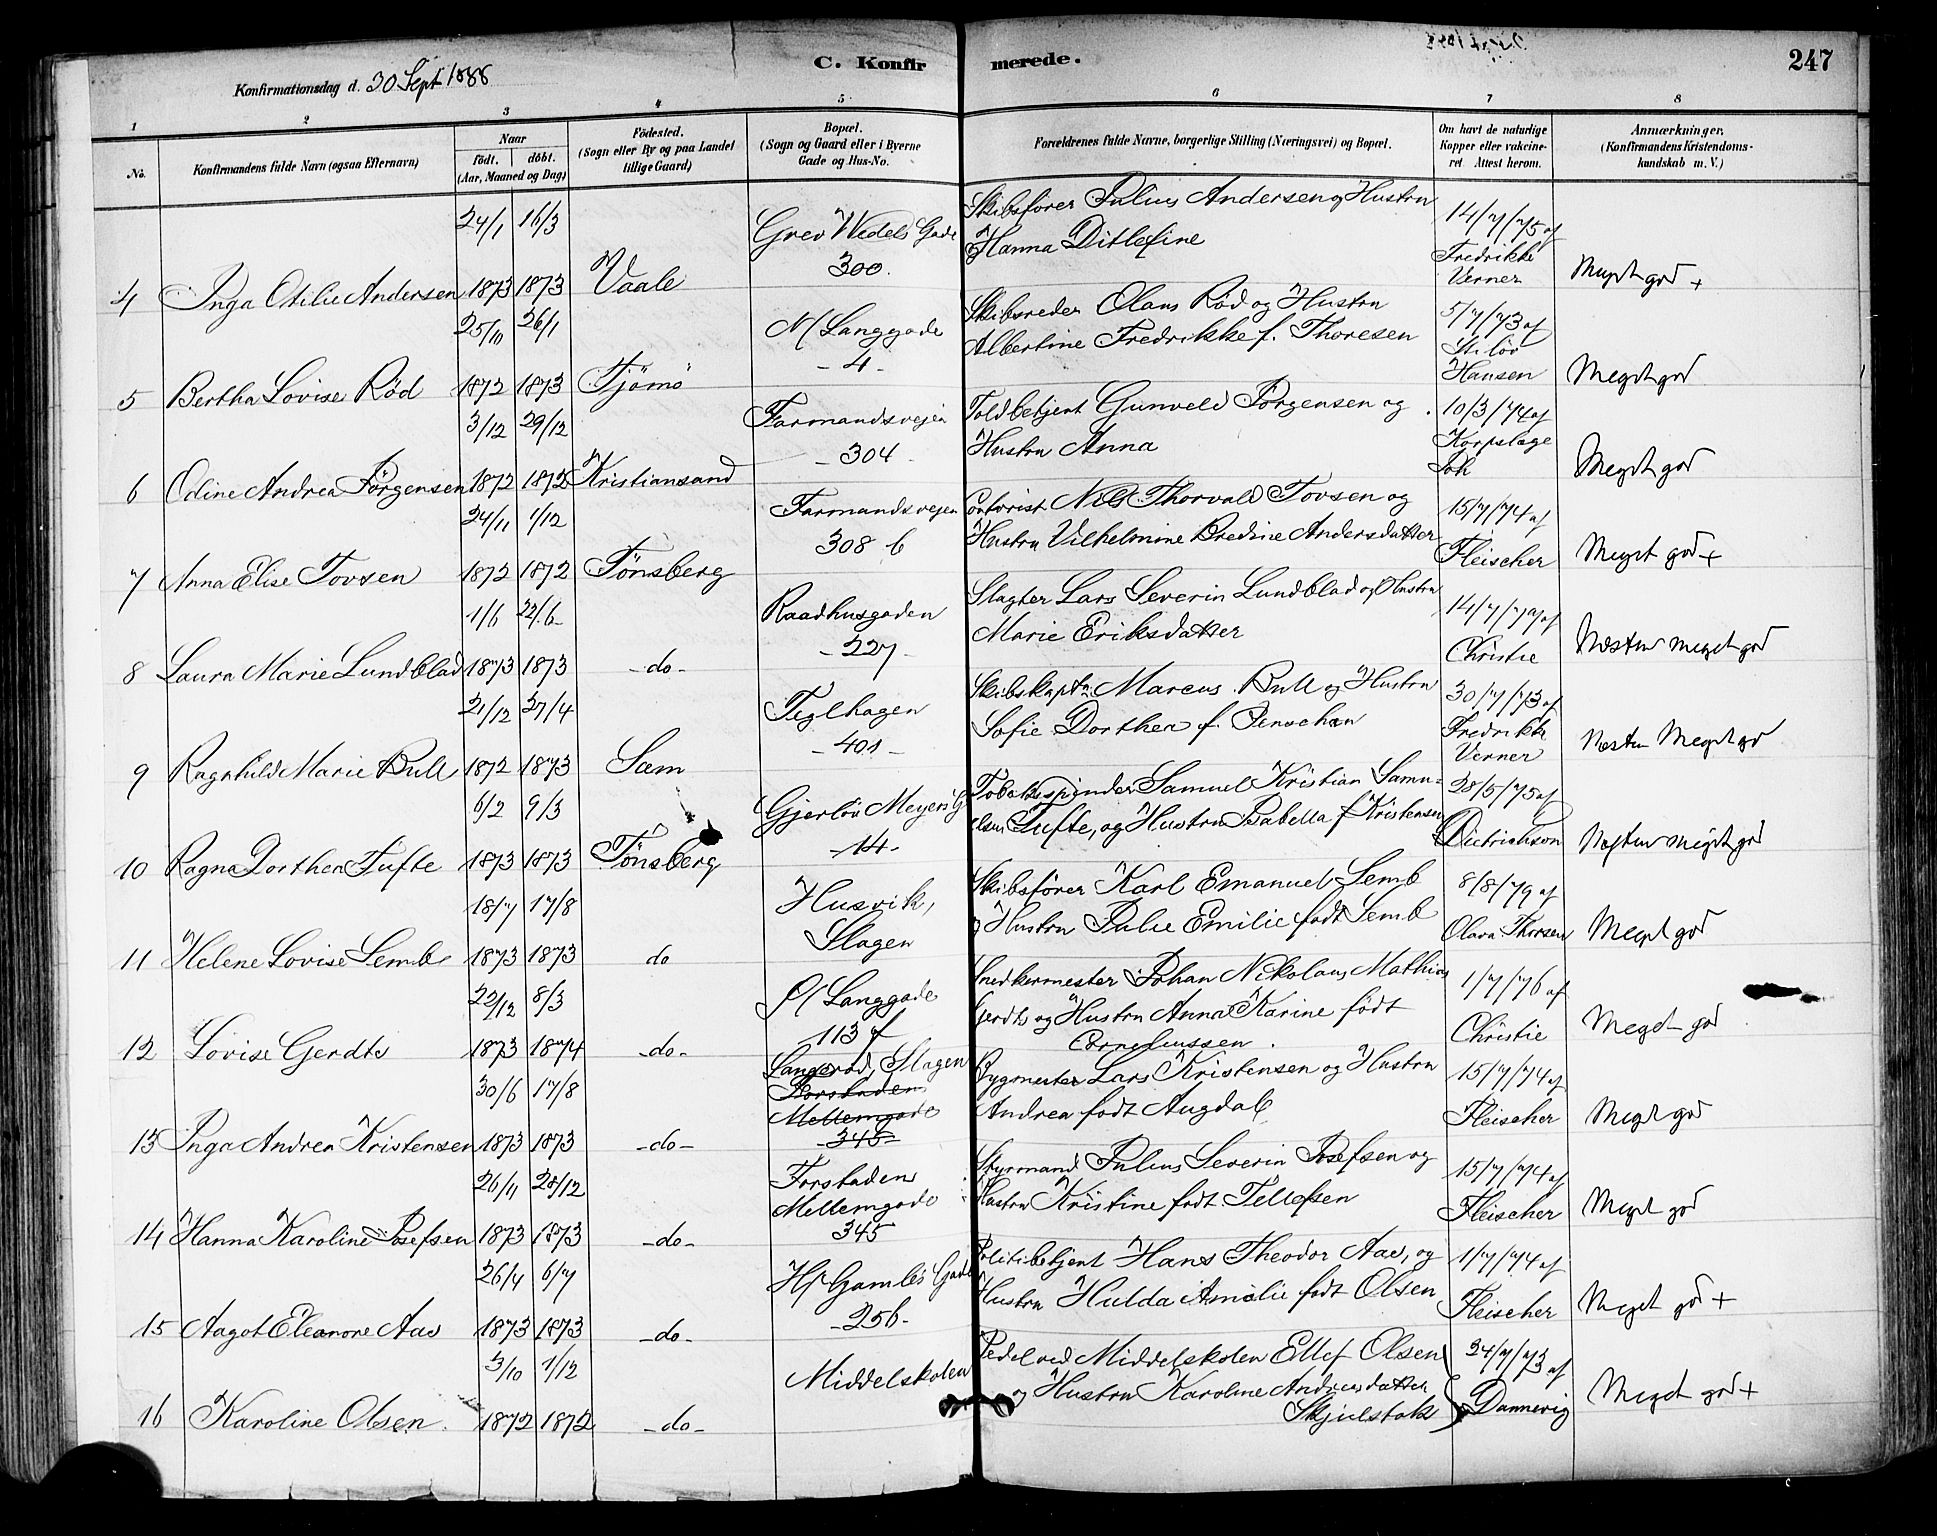 Konfirmationsdag d. 30 Sept 1888
C. Konfirmerede.
247
1 2 3 4 5 6 7 8
No.
Konfirmandens fulde Navn (ogsaa Efternavn)
Naar
födt. döbt.
(Aar, Maaned og Dag)
Födested.
(Sogn eller By og paa Landet
tillige Gaard)
Bopæl.
(Sogn og Gaard eller i Byerne
Gade og Hus-No.
Forældrenes fulde Navne, borgerlige Stilling (Næringsvei) og Bopæl.
Om havt de naturlige
Kopper eller vakcine-
ret. Attest herom.
Anmærkninger.
(Konfirmandens Kristendoms-
kundskab m. V.)
24/1 16/3 Grev Wedels Gade Skibsfører Julius Andersen og Hustru 14/7/75 af
300. Hanna Ditlefine Fredrikke
4 Inga Otilie Andersen 1873 1873 Vaale Verner Meget god +
25/10 26/1 N/ Langgade Skibsreder Olaus Rød og Hustru 5/7/73 af
- 4 - Albertine Fredrikke f. Thoresen
5 Bertha Lovise Rød 1872 1873 Tjömö Hansen Meget god
3/12 29/12 Farmandsvejen Toldbetjent Gunveld Jörgensen og 10/3/74 af
- 304 - Hustru Anna Korpslæge
6 Odine Andrea Jörgensen 1872 1872 Kristiansand Meget god
24/11 1/12 Farmandsvejen Nils Thorvald Tovsen og 15/7/74 af
308 b Hustru Vilhelmine Bredine Andersdatter
7 Anna Elise Tovsen 1872 1872 Tönsberg Fleischer Meget god +
1/6 22/6 Raadhusgaden Slagter Lars Severin Lundblad og Hustru 14/7/77 af
- 227 - Marie Eriksdatter
8 Laura Marie Lundblad 1873 1873 - do - Christie Næsten meget god
21/12 27/4 Teglhagen Skibskaptn. Marcus Bull og Hustru 30/7/73 af
- 401 - Sofie Dorthea f. Fredrikke
9 Ragnhild Marie Bull 1872 1873 Sæm Verner Næsten Meget god
6/2 9/3 Gjerlöv Meyers G. Tobakspinder Samuel Kristian Samu= 28/5/75 af
- 14 - elsen Tufte, og Hustru Isabella f. Kristensen
10 Ragna Dorthea Tufte 1873 1873 Tönsberg Dietrichson Næsten meget god
18/7 17/8 Husvik, Skibsfører Karl Emanuel Semb 8/8/79 af
Slagen og Hustru Julie Emilie født Semb
11 Helene Lovise Semb 1873 1873 do Olava Thorsen Meget god
22/12 8/3 Ø/ Langgade Snedkermester Johan Nikolaus Mathias 1/7/76 af
113 f Gerdts og Hustru Anna Karine født
12 Lovise Gerdts 1873 1874 - do - Corneliussen. Christie Meget god
30/6 17/8 Slagen Bygmester Lars Kristensen og Hustru 15/7/74 af
Forstaden
Mellemgade Andrea født Augdal
13 Inga Andrea Kristensen 1873 1873 - do - - 345 - Fleischer Meget god
26/11 28/12 Forstaden Styrmand Julius Severin Josefsen og 15/7/74 af
Mellemgade Hustru Kristine født Tellefsen
14 Hanna Karoline Josefsen 1873 1873 - do - 345 Fleischer Meget god
26/4 6/7 Hf Gamles Gade Politibetjent Hans Theodor Aas, og 1/7/74 af
- 256 - Hustru Hulda Amalie født Olsen
15 Aagot Eleanore Aas 1873 1873 - do - Fleischer Meget god +
3/10 1/12 Middelskolen Pedel ved Middelskolen Ellef Olsen 24/7/73 af
og Hustru Karoline Andreasdatter
16 Karoline Olsen. 1872 1872 - do - Skjulstok Dannevig Meget god +